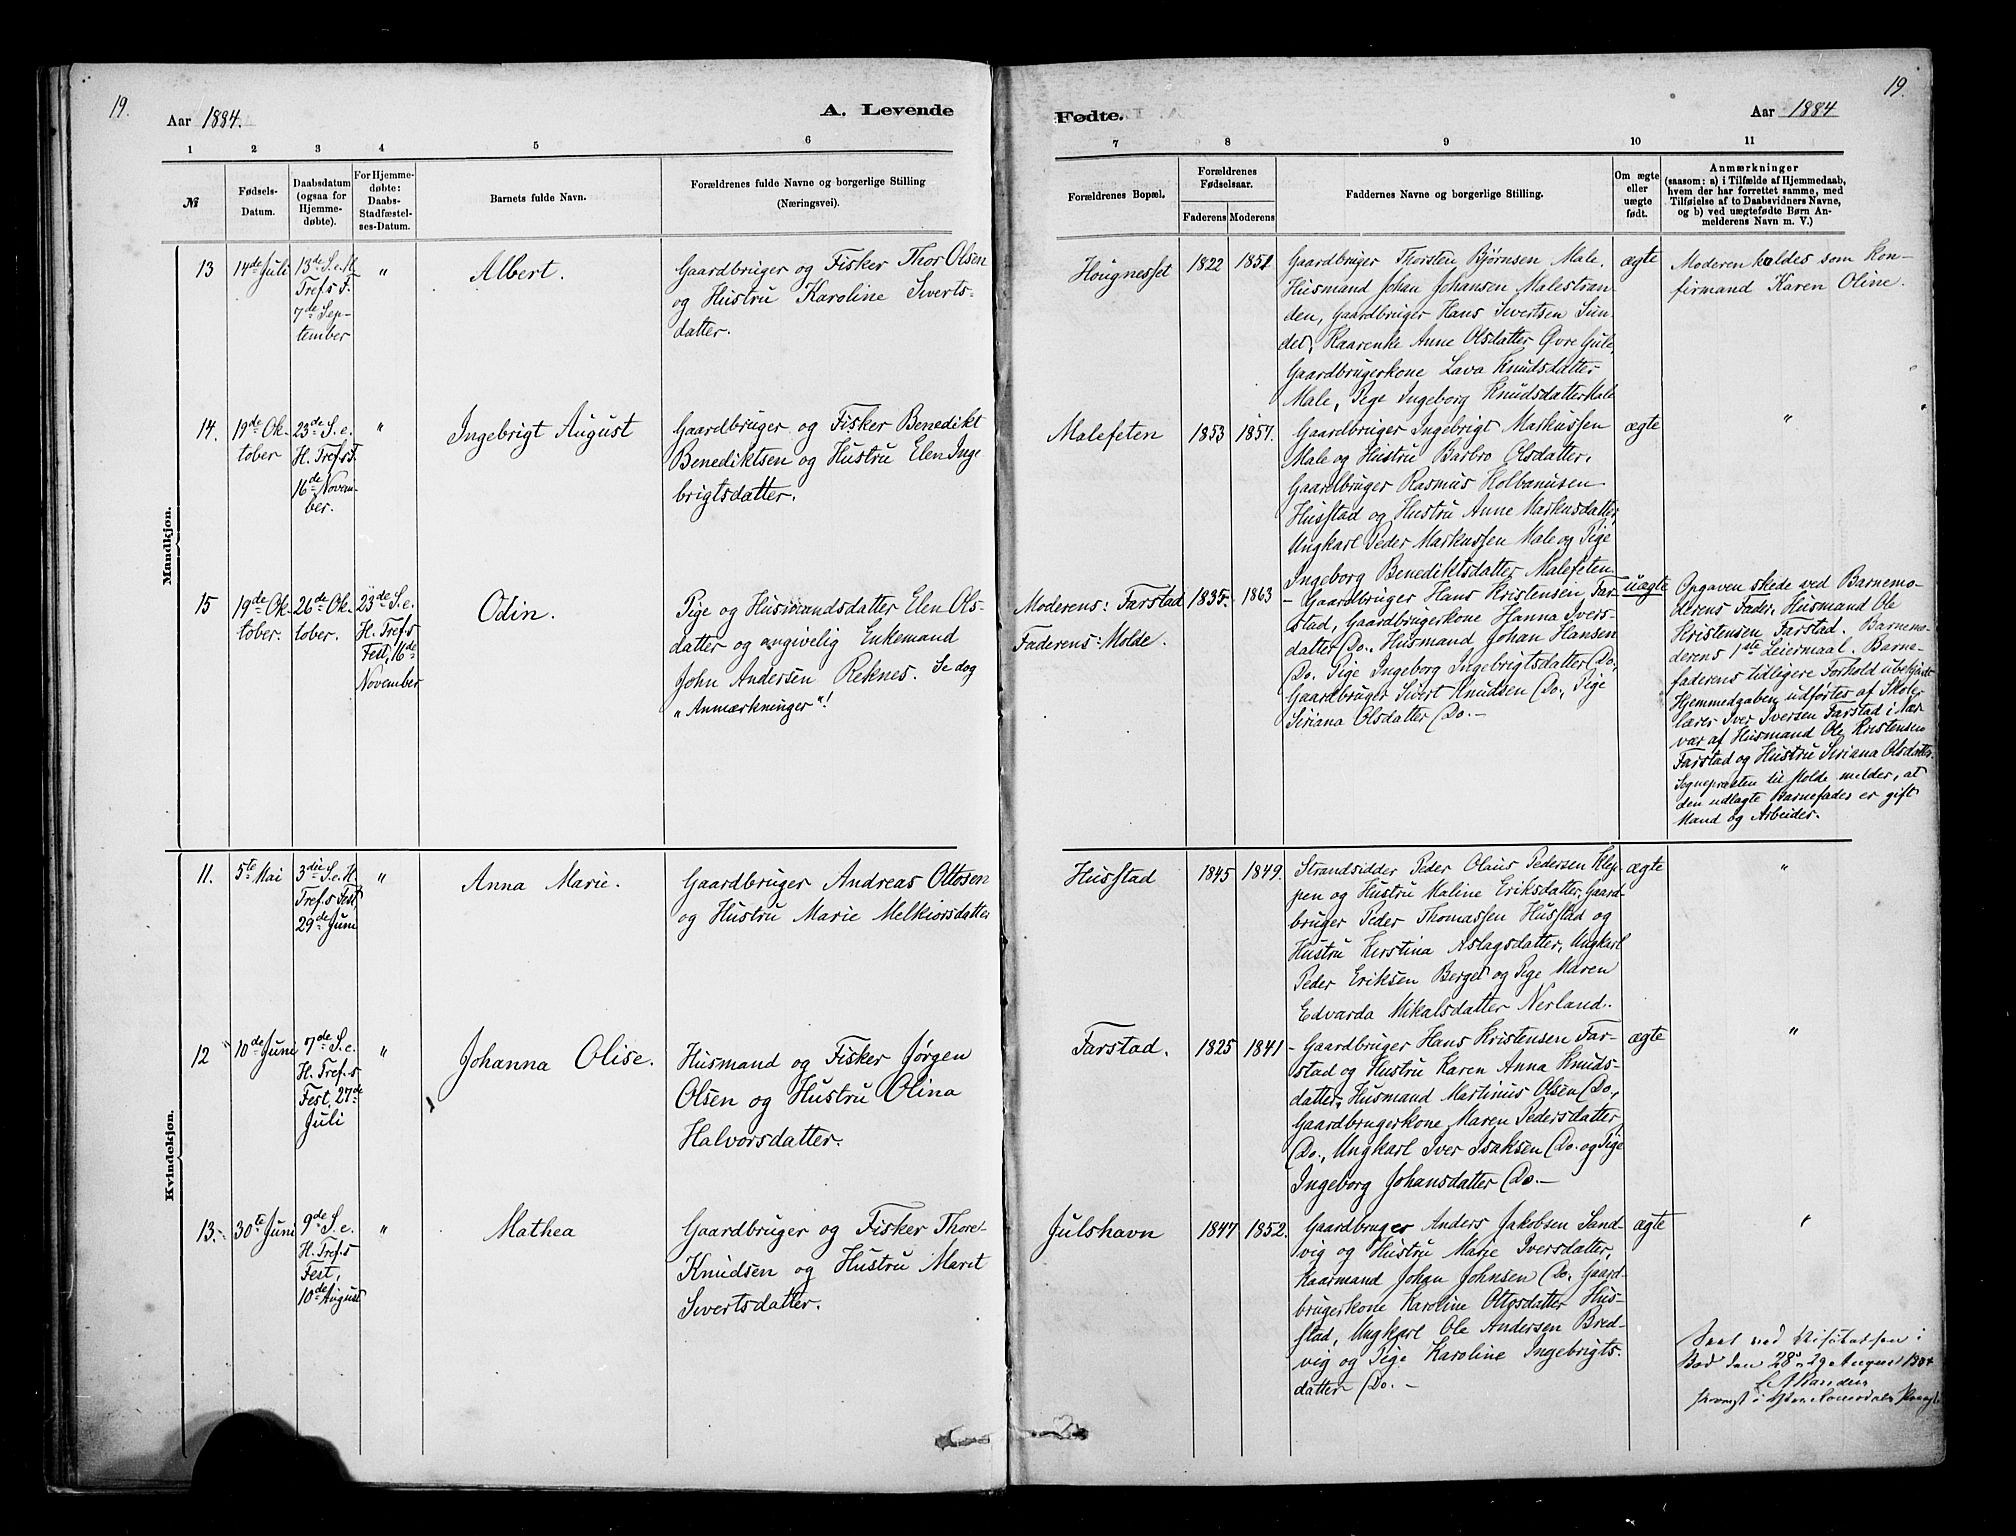 19.
Aar 1884.
A. Levende
1 2 3 4 5 6
№
Fødsels-
Datum.
Daabsdatum
(ogsaa for
Hjemme-
døbte).
For Hjemme-
døbte:
Daabs-
Stadfæstel-
ses-Datum.
Barnets fulde Navn.
Forældrenes fulde Navne og borgerlige Stilling
(Næringsvei).
Mandkjøn.
13
14de Juli
13de S. e. H.
Tref.s F.
7de Sep-
tember
"
Albert.
Gaardbruger og Fisker Thor Olsen
og Hustru Karoline Siverts-
datter.
14.
19de Ok-
tober
23de S. e.
H. Tref.s F.
16de Novem-
ber.
"
Ingebrigt August
Gaardbruger og Fisker Benedikt
Benediktsen og Hustru Elen Inge
brigtsdatter.
15
19de Ok-
tober.
26de Ok-
tober.
23de S. e.
H. Tref.s
Fest, 16de
November
Odin.
Pige og Husmandsdatter Elen Ols-
datter og angivelig Enkemand
John Andersen Reknes. Se dog
"Anmærkninger"!
Kvindekjøn.
11.
5te Mai
3die S. e. H.
Tref.s Fest
29de Juni
"
Anna Marie.
Gaardbruger Andreas Ottosen
og Hustru Marie Melkiorsdatter
12
10de Juni
7de S. e.
H. Tref.s
Fest, 27de
Juli
"
Johanna Olise.
Husmand og Fisker Jørgen
Olsen og Hustru Olina
Halvorsdatter.
13.
30te Juni
9de S. e.
H. Tref.s
Fest,
10de August
"
Mathea
Gaardbruger og Fisker Thore
Knudsen og Hustru Marit
Sivertsdatter.
19.
Fødte.
Aar 1884
7 8 9 10 11
Forældrenes Bopæl.
Forældrenes
Fødselsaar.
Faderens Moderens
Faddernes Navne og borgerlige Stilling.
Om ægte
eller
uægte
født.
Anmærkninger
(saasom: a) i Tilfælde af Hjemmedaab,
hvem der har forrettet samme, med
Tilføielse af to Daabsvidners Navne,
og b) ved uægtefødte Børn An-
melderens Navn m. V.)
Hougnesset
1822 1851
Gaardbruger Thorsten Bjørnsen Male.
Husmand Johan Johansen Malestran-
den, Gaardbruger Hans Sivertsen Sun-
det, Kaarenke Anne Olsdatter Øvre Gule,
Gaardbrugerkone Lava Knudsdatter
Male, Pige Ingeborg Knudsdatter Male
ægte
Moderen koldes som Kon-
firmand Karen Oline.
Malefeten
1853 1857.
Gaardbruger Ingebrigt Markussen
Male og Hustru Barbro Olsdatter,
Gaardbruger Rasmus Kolbanusen
Husstad og Hustru Anne Markusdatter,
Ungkarl Peder Markussen Male og Pige
Ingeborg Benediktsdatter Malefeten
ægte
"
Moderens: Farstad
Faderens: Molde.
1835. 1863
- Gaardbruger Hans Kristensen Far-
stad, Gaardbrugerkone Hanna Ivers-
datter Do., Husmand Johan Hansen
Do. Pige Ingeborg Ingebrigtsdatter Do,
Gaardbruger Sivert Knudsen Do, Pige
Siriana Olsdatter Do.-
uægte
Opgaven skede ved Barnemo-
derens Fader, Husmand Ole
Kristensen Farstad. Barnemo-
derens 1ste Leiermaal. Barne-
faderens tidligere Forhold ubekjendt
Hjemmedaaben udførtes af Skole-
lærer Iver Iversen Farstad i Nær
vær af Husmand Ole Kristensen
Farstad og Hustru Siriana Olsdatter.
Sognepræsten til Molde melder, at
den udlagte Barnefader er gift
Mand og Arbeider.
Husstad
1845 1849.
Strandsidder Peder Olaus Pedersen Klep-
pen og Hustru Maline Eriksdatter, Gaard-
bruger Peder Thomassen Husstad og
Hustru Kerstina Aslagsdatter, Ungkarl
Peder Eriksen Berget og Pige Maren
Edvarda Mikalsdatter Nerland.
ægte
"
Farstad.
1825 1841
- Gaardbruger Hans Kristensen Far-
stad og Hustru Karen Anna Knuds-
datter, Husmand Martinus Olsen Do.,
Gaardbrugerkone Maren Pedersdatter
Do., Ungkarl Iver Isaksen Do. og Pige
Ingeborg Johansdatter Do.-
ægte
"
Julshavn
1847 1852.
Gaardbruger Anders Jakobsen Sand-
vig og Hustru Marie Iversdatter,
Kaarmand Johan Johnsen Do. Gaard-
brugerkone Karoline Ottosdatter Hus-
stad, Ungkarl Ole Andersen Bred-
vig og Pige Karoline Ingebrigts-
datter Do.-
ægte
"
Seet ved Visitatsen i
Bod den 28 29 August 1904
Provst i